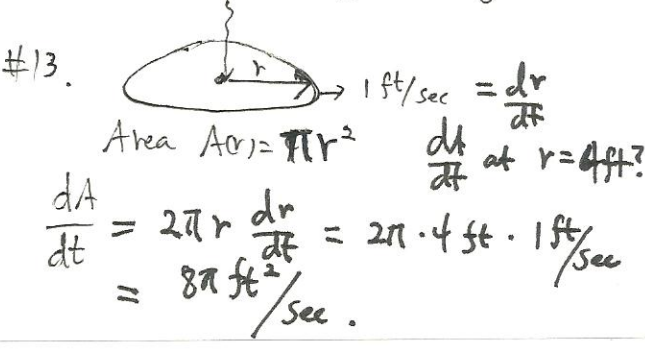 #13.
r
1 ft/sec = dr/dt
Area A(r) = πr²
dA/dt at r = 4ft?
dA/dt = 2πr dr/dt = 2π · 4 ft · 1 ft/sec
= 8π ft²/sec.